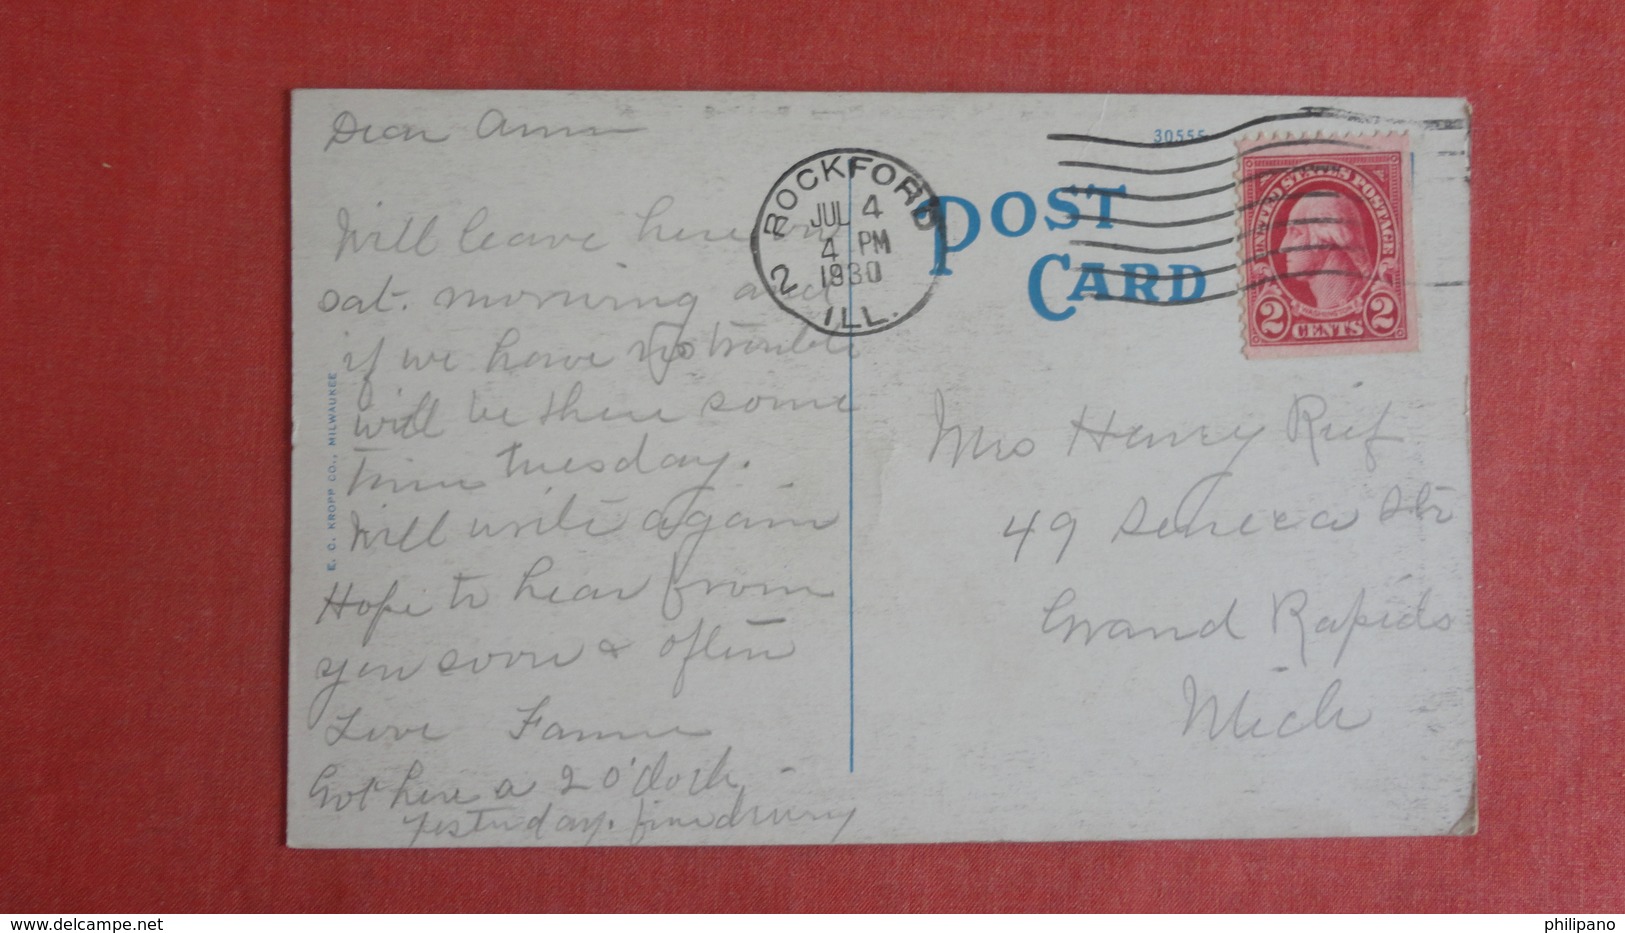 Dear Ann
Will leave here on
sat. morning and
if we have no trouble
will be there some
time tuesday.
Will write again
Hope to hear from
you soon & often
Love Fannie
Got here a 2 o'clock
yesterday. fine driving
E. C. KROPP CO., MILWAUKEE
ROCKFORD
JUL 4
4 PM
1930
2 ILL.
30555
POST
CARD
UNITED STATES POSTAGE
WASHINGTON
2 CENTS 2
Mrs Henry Rief
49 Seneca Str
Grand Rapids
Mich
www.delcampe.net
philipano